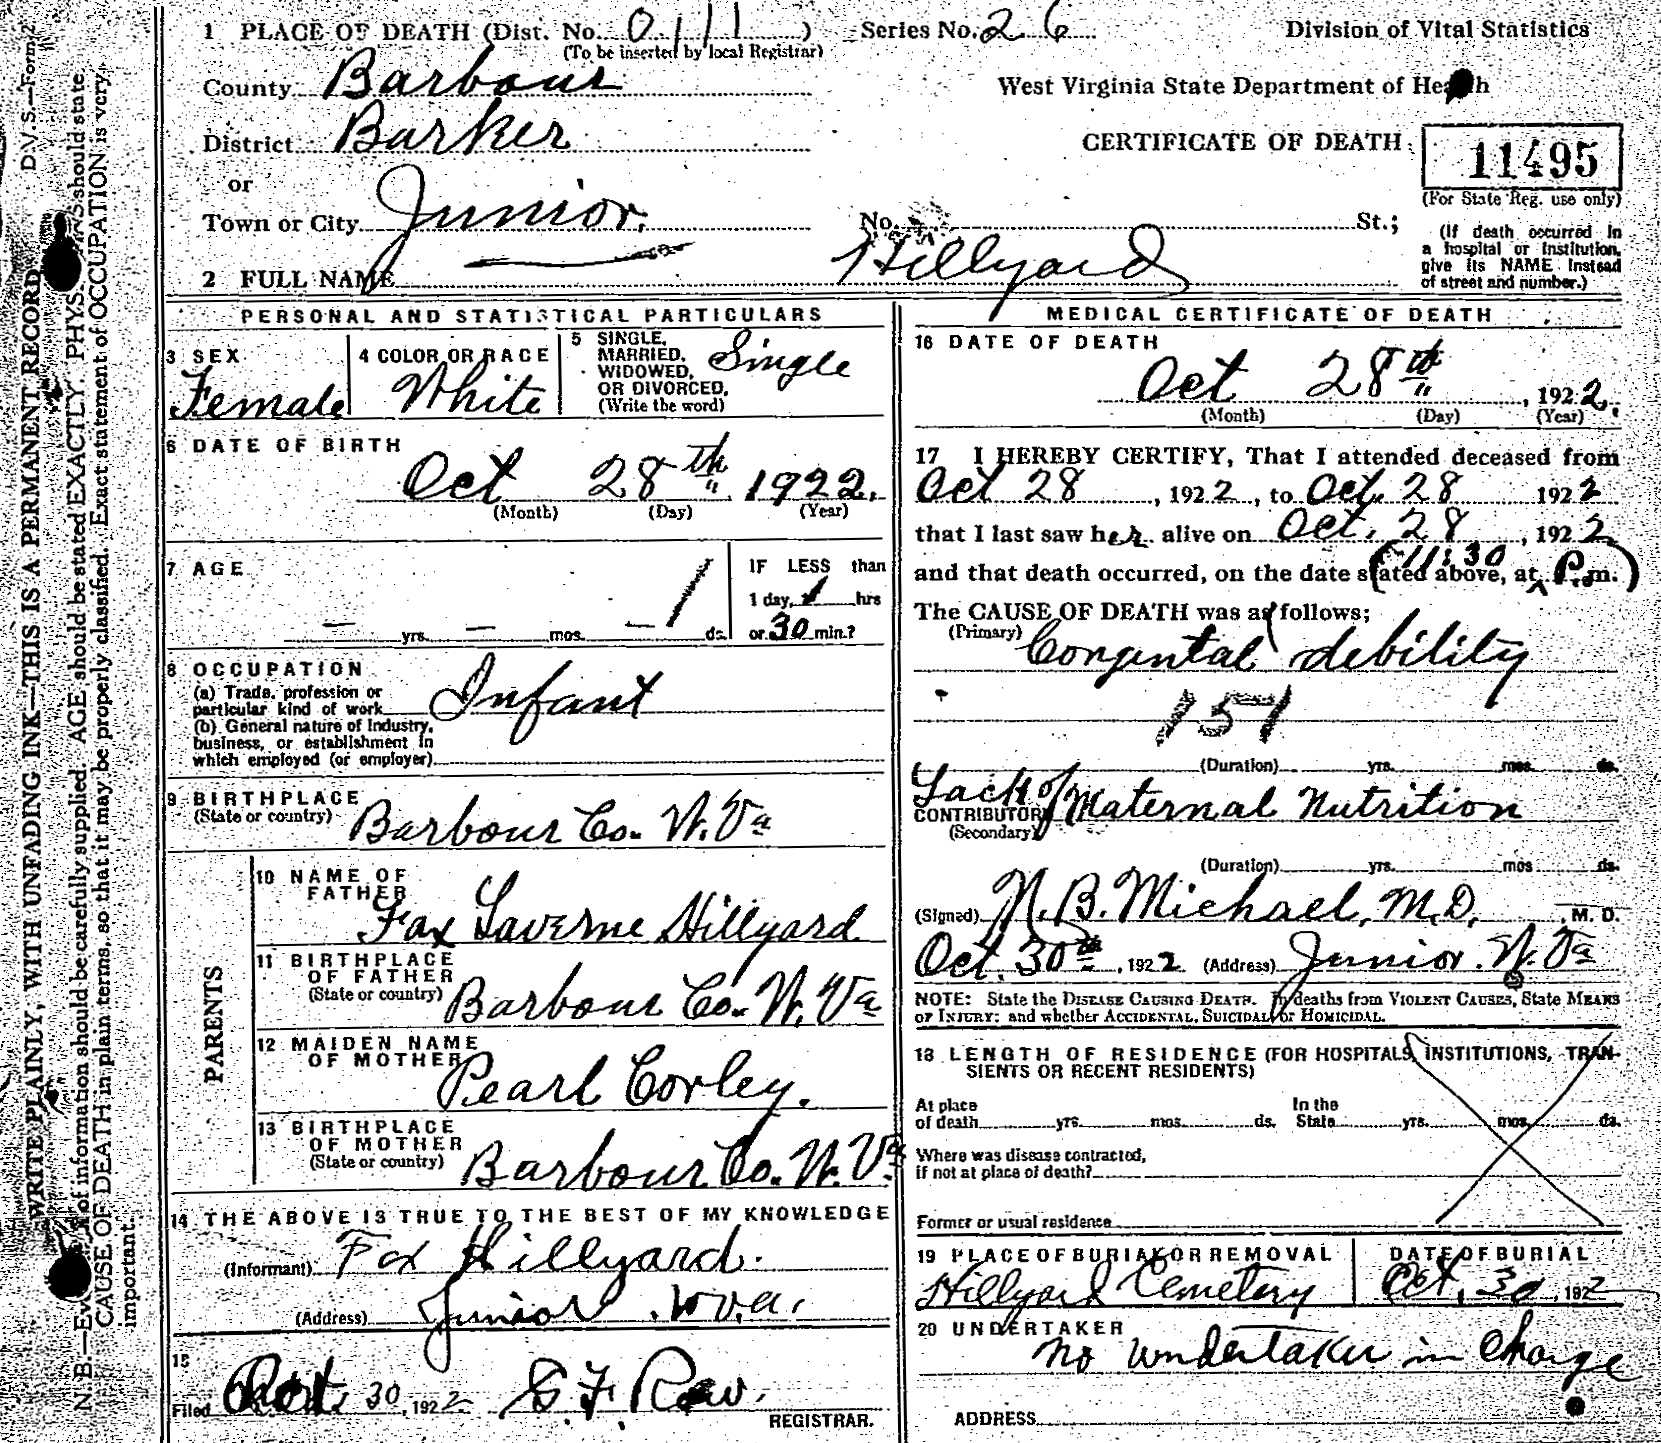 1 PLACE OF DEATH (Dist. No. 0111) Series No. 26 Division of Vital Statistics
(To be inserted by local Registrar)
County Barbour West Virginia State Department of Health
District Barker CERTIFICATE OF DEATH 11495
or (For State Reg. use only)
Town or City Junior. No. St.;
(If death occurred in a hospital or institution, give its NAME instead of street and number.)
2 FULL NAME Hillyard
PERSONAL AND STATISTICAL PARTICULARS
3 SEX
Female
4 COLOR OR RACE
White
5 SINGLE, MARRIED, WIDOWED, OR DIVORCED, (Write the word)
Single
6 DATE OF BIRTH
Oct 28th 1922.
(Month) (Day) (Year)
7 AGE
— yrs. — mos. — 1 ds.
IF LESS than
1 day, 1 hrs
or 30 min.?
8 OCCUPATION
(a) Trade, profession or
particular kind of work Infant
(b) General nature of Industry,
business, or establishment in
which employed (or employer)
9 BIRTHPLACE
(State or country) Barbour Co. W. Va
PARENTS
10 NAME OF
FATHER
Fax Laverne Hillyard
11 BIRTHPLACE
OF FATHER
(State or country) Barbour Co. W. Va
12 MAIDEN NAME
OF MOTHER
Pearl Corley.
13 BIRTHPLACE
OF MOTHER
(State or country) Barbour Co. W. Va.
14 THE ABOVE IS TRUE TO THE BEST OF MY KNOWLEDGE
(Informant) Fox Hillyard.
(Address) Junior W va.
15
Filed Oct. 30, 1922 S. F. Row.
REGISTRAR.
MEDICAL CERTIFICATE OF DEATH
16 DATE OF DEATH
Oct 28th, 1922.
(Month) (Day) (Year)
17 I HEREBY CERTIFY, That I attended deceased from
Oct 28, 1922, to Oct. 28 1922
that I last saw her alive on Oct. 28, 1922
and that death occurred, on the date stated above, at (11:30 P.m.)
The CAUSE OF DEATH was as follows;
(Primary) Congental debility
151
(Duration) yrs. mos. ds.
Lack of Maternal Nutrition
CONTRIBUTORY
(Secondary)
(Duration) yrs. mos ds.
(Signed) N. B. Michael, M.D., M. D.
Oct. 30th, 1922 (Address) Junior. W. Va
NOTE: State the DISEASE CAUSING DEATH. In deaths from VIOLENT CAUSES, State MEANS
OF INJURY; and whether ACCIDENTAL, SUICIDAL or HOMICIDAL.
18 LENGTH OF RESIDENCE (FOR HOSPITALS, INSTITUTIONS, TRAN-
SIENTS OR RECENT RESIDENTS)
At place In the
of death yrs. mos. ds. State yrs. mos. ds.
Where was disease contracted,
if not at place of death?
Former or usual residence
19 PLACE OF BURIAL OR REMOVAL DATE OF BURIAL
Hillyard Cemetery Oct. 30, 1922
20 UNDERTAKER
No undertaker in charge
ADDRESS
D.V.S.—Form 2
WRITE PLAINLY, WITH UNFADING INK—THIS IS A PERMANENT RECORD
N. B.—Every of information should be carefully supplied. AGE should be stated EXACTLY. PHYSICIANS should state
CAUSE OF DEATH in plain terms, so that it may be properly classified. Exact statement of OCCUPATION is very
important.